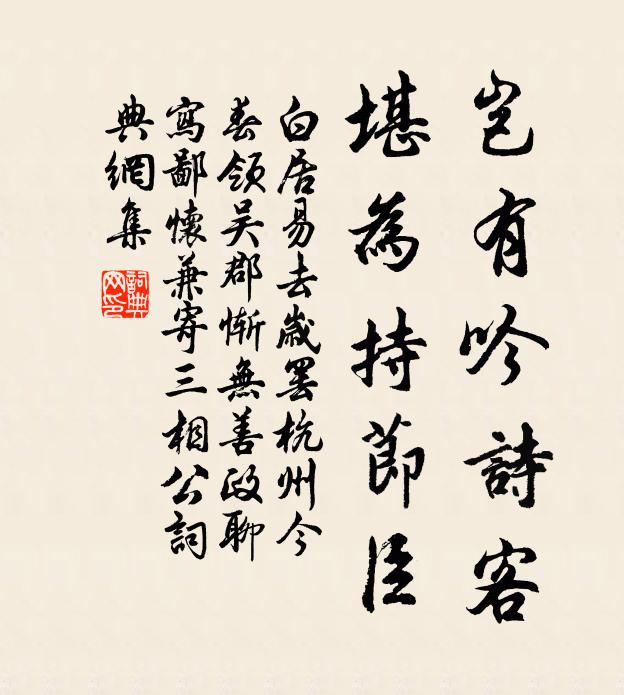 豈有吟詩客
堪為持節臣
白居易去歲罷杭州今
春領吴郡慚無善政聊
寫鄙懷兼寄三相公詞
典網集
詞典
网印